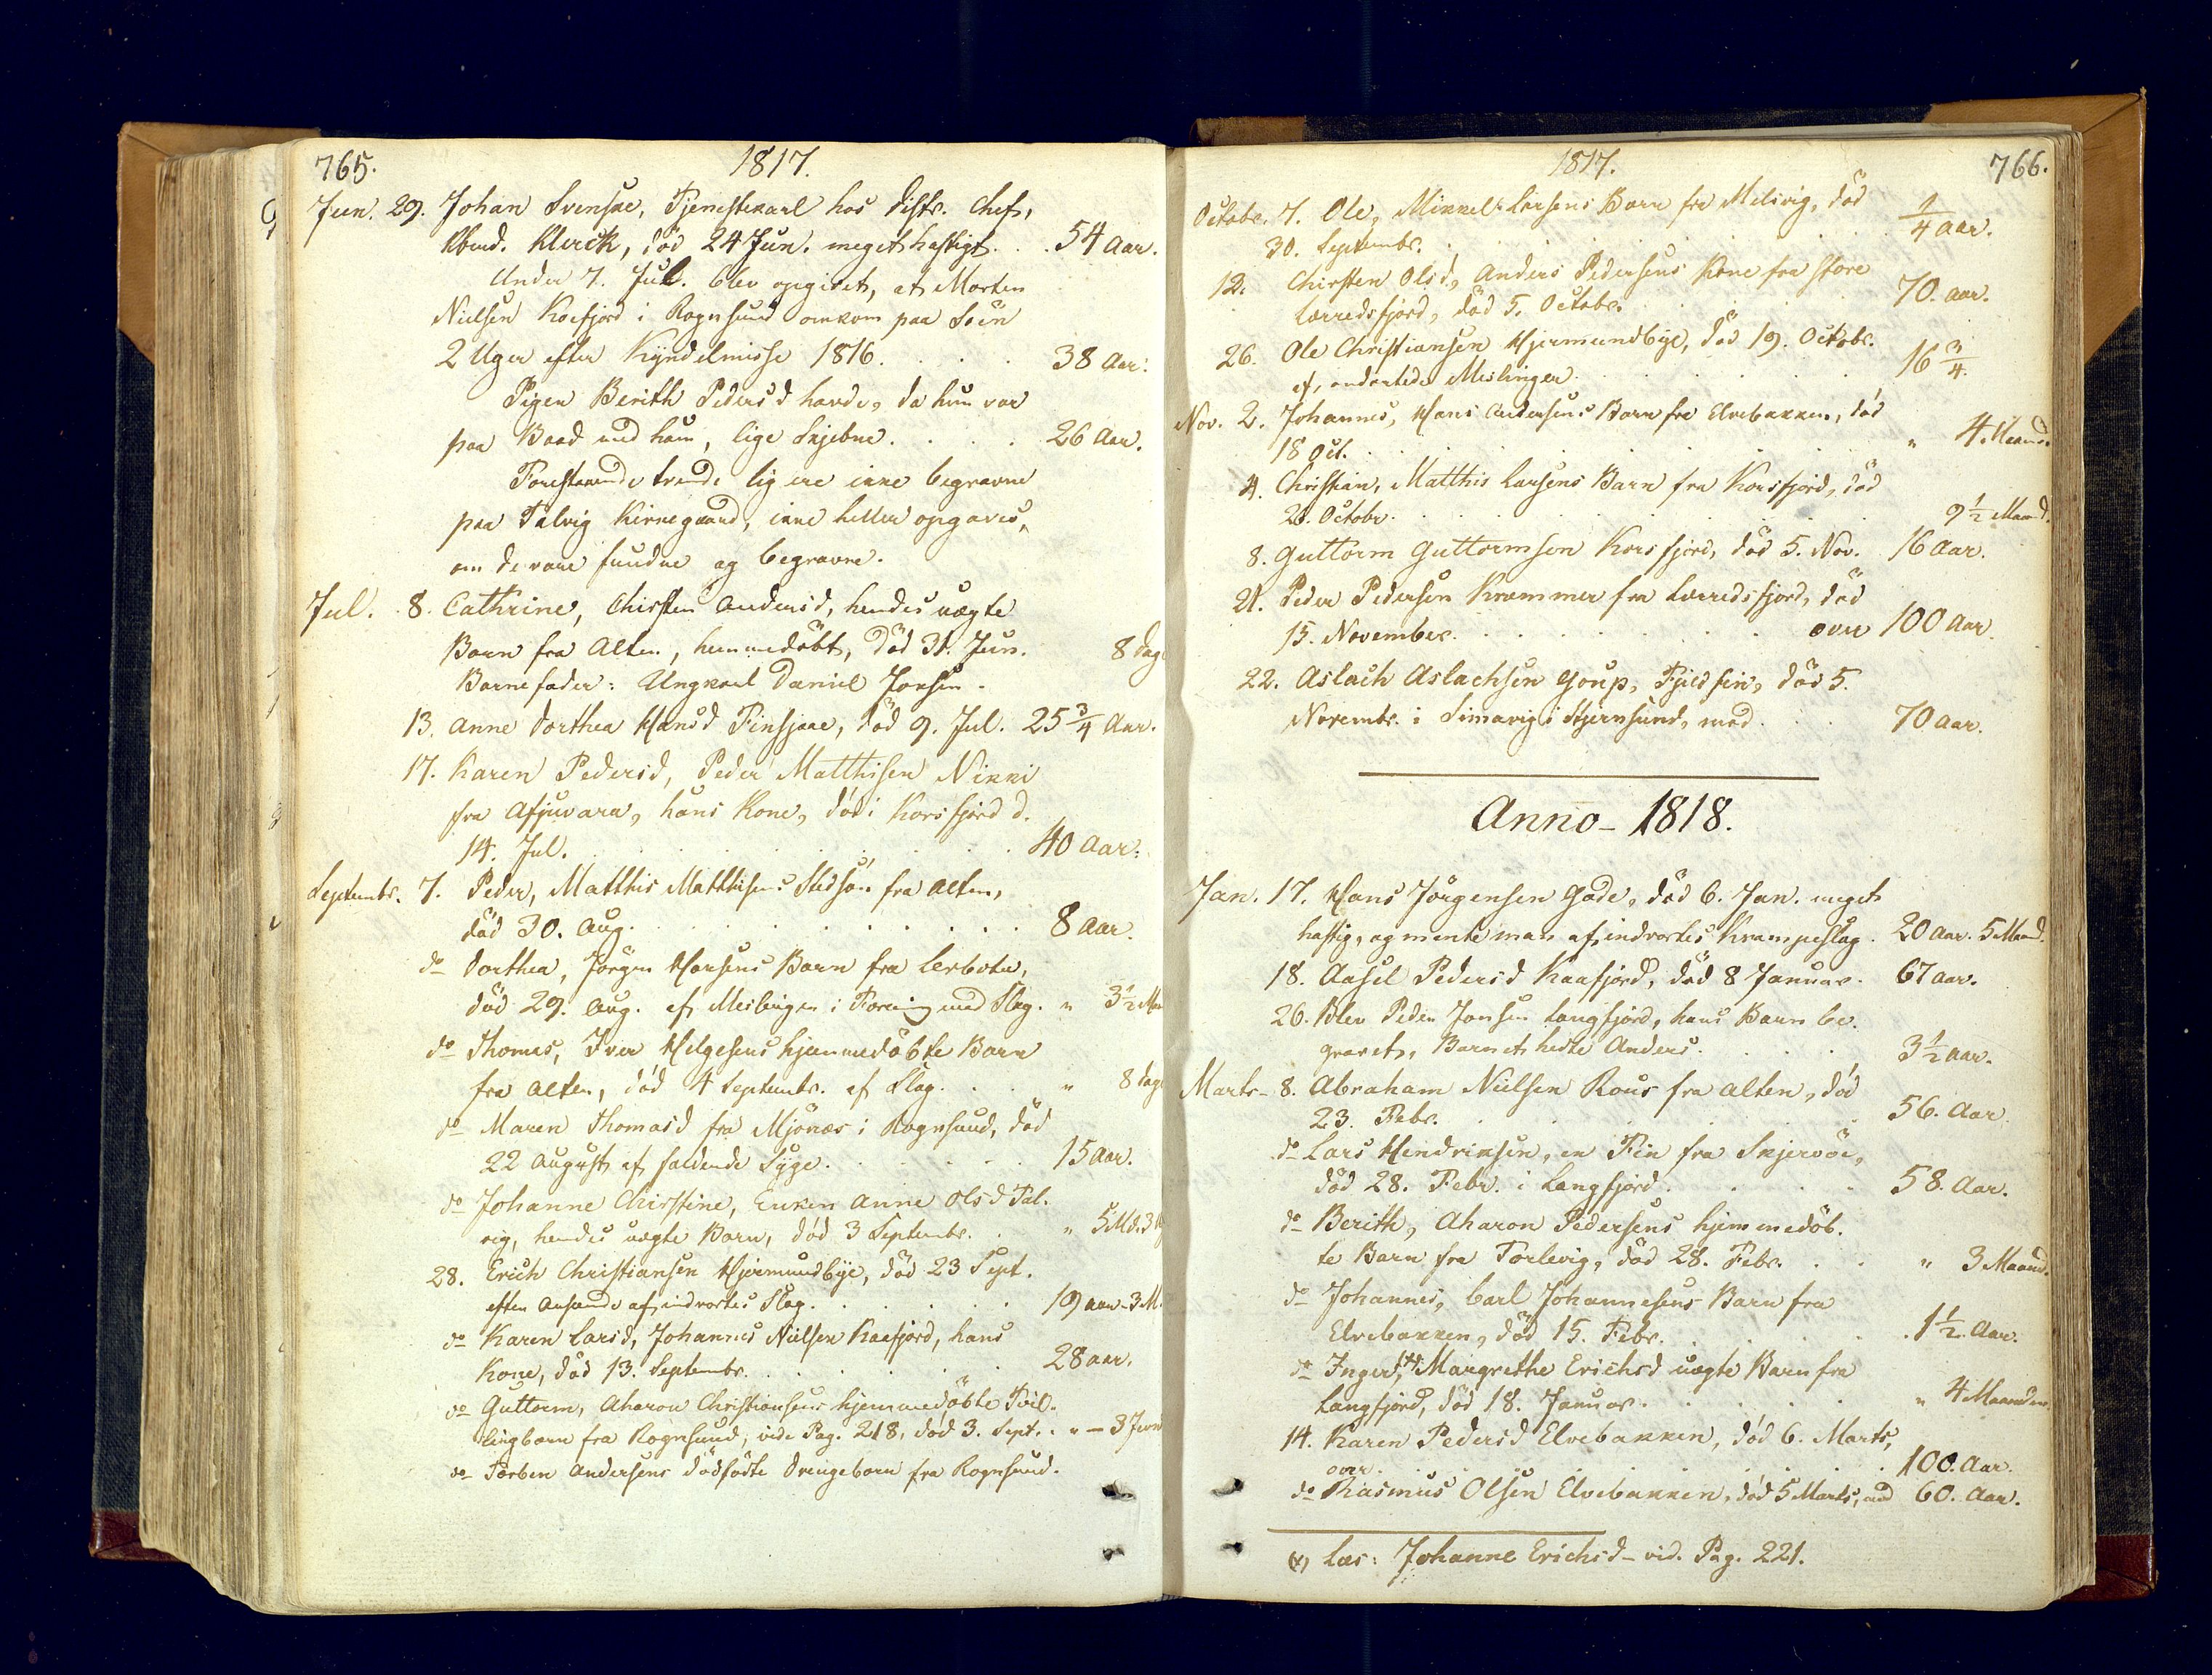 765. 1817.
Jun. 29. Johan Svenske, Tjenestekarl hos Distr. Chef,
Obrd. Klerck, död 24 Jun. meget hastigt. . . 54 Aar.
Under 7. Jul. blev opgivet, at Morten
Nielsen Koefjord i Rognsund omkom paa Söen
2 Uger efter Kyndelmisse 1816. . . . 38 Aar.
Pigen Berith Pedersd havde, da hun var
paa Baad med ham, lige Skjebne. . . . 26 Aar.
Forestaaende trende Lig ere ikke begravne
paa Talvig Kirkegaard, ikke heller opgaves,
om de vare fundne og begravne.
Jul. 8. Cathrine, Chirsten Andersd, hendes uægte
Barn fra Alten, hjemmedöbt, död 31. Jun. 8 Dage
Barnefader: Ungkarl Daniel Jonsen.
13. Anne Dorthea Hansd Finsjaae, död 9. Jul. 25 3/4 Aar.
17. Karen Pedersd, Peder Matthisen Nikki
fra Afjuvara, hans Kone, död i Korsfjord d.
14. Jul. . . . . 40 Aar.
Septembr. 7. Peder, Matthis Matthisens Stedsön fra Alten,
död 30. Aug. . . . . 8 Aar.
do Dorthea, Jörgen Hansens Barn fra Lerbotn,
död 29. Aug. af Meslingen i Forening med Slag. " 3 1/2 Maa
do Thomas, Iver Helgesens hjemmedöbte Barn
fra Alten, död 4 Septembr. af Slag. . . " 8 Dage
do Maren Thomasd fra Mjönæs i Rognsund, död
22 August af faldende Syge. . . . 15 Aar.
do Johanne Chirstine, Enken Anne Olsd Tal-
vig, hendes uægte Barn, död 3 Septembr. . " 5 Md. 3
28. Erich Christiansen Hjermundbye, död 23 Sept.
efter Ansaaende af indvortes Slag. . . . 19 Aar 3 M.
do Karen Larsd, Johannes Nielsen Kaafjord, hans
Kone, död 13. Septembr. . . . 28 Aar.
do Guttorm, Aharon Christiansens hjemmedöbte Tvil-
lingbarn fra Rognsund, vide Pag. 218, död 3. Sept. . " - 3
do Torben Andersens dödfödte Drengebarn fra Rognsund.
1817. 766.
Octobr. 7. Ole, Mikkel Larsens Barn fra Melsvig, död
30. Septembr. . . . 1/4 Aar.
12. Chirsten Olsd, Anders Pedersens Kone fra Store
Lerredsfjord, död 5. Octobr. . . . 70. Aar.
26. Ole Christiansen Hjermundbye, död 19. Octobr.
af ondartede Meslinger. . . . 16 3/4.
Nov. 2. Johannes, Hans Andersens Barn fra Elvebakken, död
18 Oct. . . . " 4 Maand.
4. Christian, Matthis Larsens Barn fra Korsfjord, död
26. Octobr. . . . 9 1/2 Maand.
8. Guttorm Guttormsen Korsfjord, död 5. Nov. 16 Aar.
21. Peder Pedersen Krammer fra Lerredsfjord, död
15. November. . . . over 100 Aar.
22. Aslach Aslachsen Goup, Fjeldfin, död 5.
Novembr. i Simavig i Stjernsund, med . . . 70 Aar.
Anno 1818.
Jan. 17. Hans Jörgensen Gade, död 6. Jan. meget
hastig, og mente man af indvortes Krampeslag. 20 Aar. 5 Maand.
18. Aasel Pedersd Kaafjord, död 8 Januar. 67 Aar.
26. Blev Peder Jonsen Langfjord, hans Barn be-
gravet, Barnet hedte Anders. . . . 3 1/2 Aar.
Marts 8. Abraham Nielsen Rous fra Alten, död
23. Febr. . . . 56. Aar
do Lars Hendriksen, en Fin fra Skjervöe,
död 28. Febr. i Langfjord. . . . 58. Aar.
do Berith, Aharon Pedersens hjemmedöb-
te Barn fra Torlevig, död 28. Febr. . . " 3 Maand.
do Johannes, Carl Johannesens Barn fra
Elvebakken, död 15. Febr. . . . 1 1/2. Aar.
do Inger, (x) Margrethe Erichsd uægte Barn fra
Langfjord, död 18. Januar. . . . " 4 Maaneder.
14. Karen Pedersd Elvebakken, död 6. Marts,
over . . . 100. Aar.
do Rasmus Olsen Elvebakken, död 5 Marts, med 60. Aar.
(x) Læs: Johanne Erichsd - vid. Pag. 221.